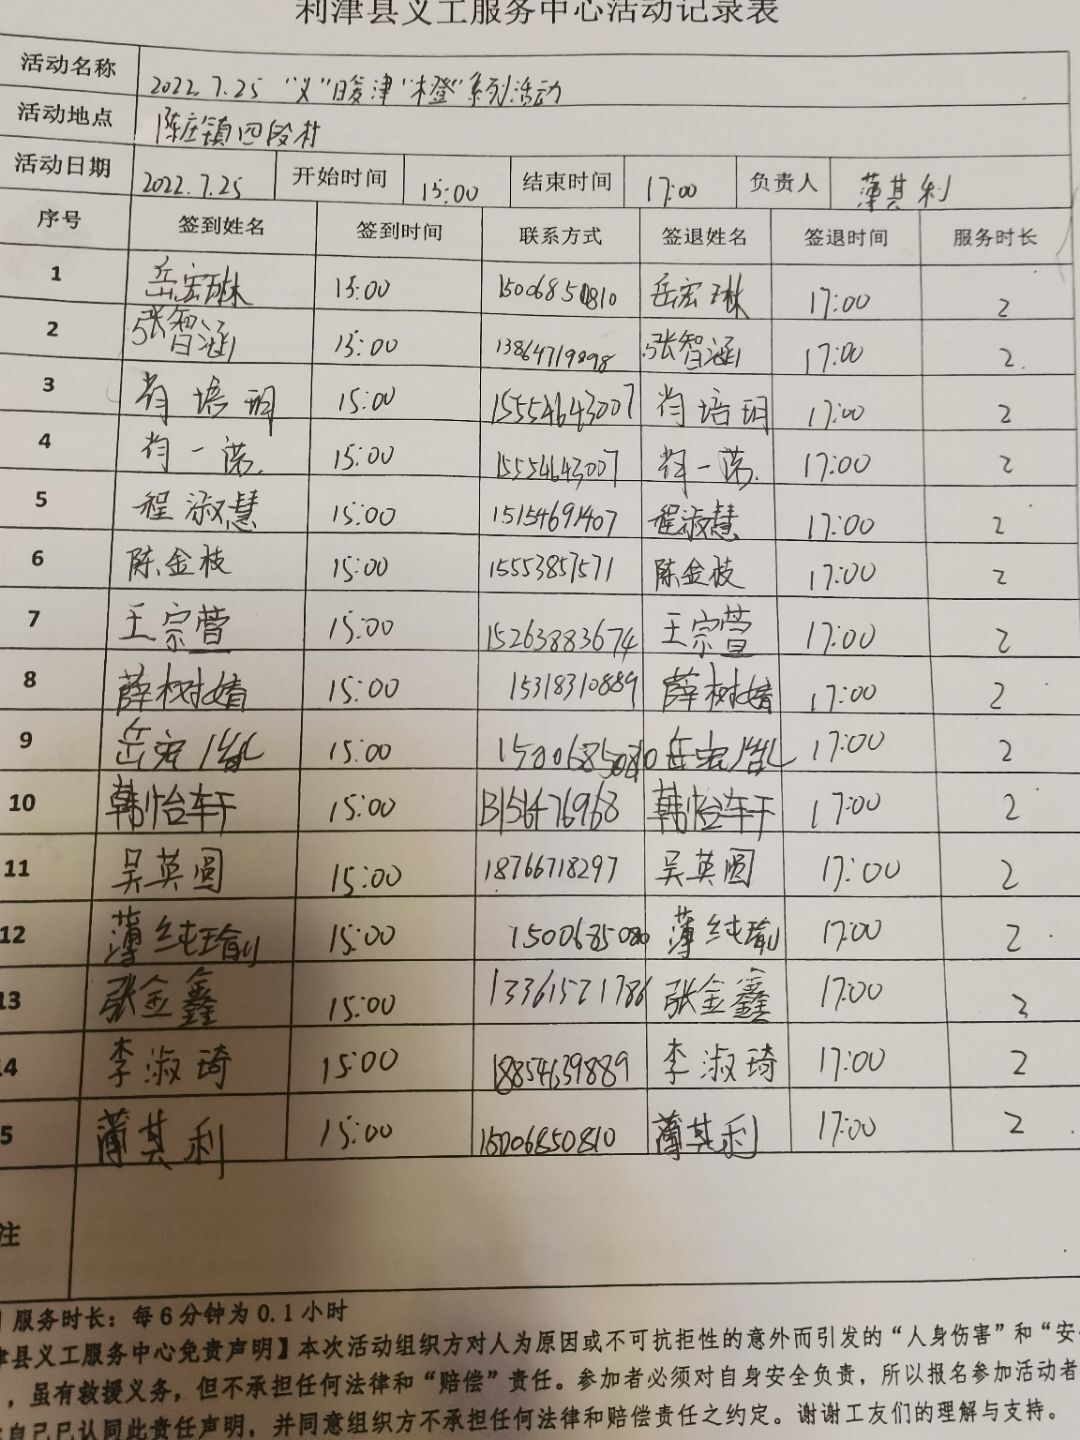 利津县义工服务中心活动记录表
活动名称 2022.7.25 "义"暖津"橙"系列活动
活动地点 陈庄镇四段村
活动日期 2022.7.25 开始时间 15:00 结束时间 17:00 负责人 薄其利
序号 签到姓名 签到时间 联系方式 签退姓名 签退时间 服务时长
1 岳宏琳 15:00 15006850810 岳宏琳 17:00 2
2 张智涵 15:00 13864719898 张智涵 17:00 2
3 尚培玥 15:00 15554643007 尚培玥 17:00 2
4 尚一诺 15:00 15554643007 尚一诺 17:00 2
5 程淑慧 15:00 15154691407 程淑慧 17:00 2
6 陈金枝 15:00 15553857571 陈金枝 17:00 2
7 王宗萱 15:00 15263883674 王宗萱 17:00 2
8 薛树婧 15:00 15318310889 薛树婧 17:00 2
9 岳宏 15:00 岳宏 17:00 2
10 韩怡 15:00 韩怡 17:00 2
11 吴英圆 15:00 18766718297 吴英圆 17:00 2
12 薄纯瑜 15:00 薄纯瑜 17:00 2
13 张金鑫 15:00 13361521786 张金鑫 17:00 2
4 李淑琦 15:00 18854639889 李淑琦 17:00 2
5 薄其利 15:00 15006850810 薄其利 17:00 2
注
服务时长：每6分钟为0.1小时
津县义工服务中心免责声明】本次活动组织方对人为原因或不可抗拒性的意外而引发的“人身伤害”和“安
，虽有救援义务，但不承担任何法律和“赔偿”责任。参加者必须对自身安全负责，所以报名参加活动者
自己已认同此责任声明，并同意组织方不承担任何法律和赔偿责任之约定。谢谢工友们的理解与支持。